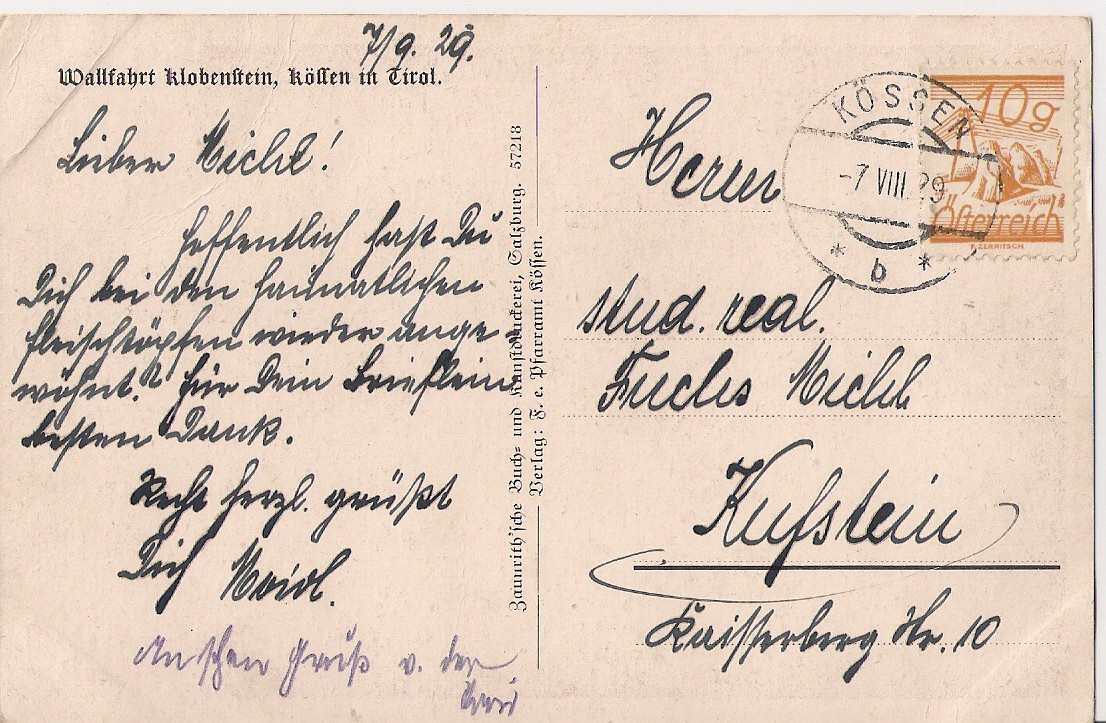 7/9. 29.
Wallfahrt Klobenstein, Kössen in Tirol.
Lieber Michl!
Hoffentlich hast Du
Dich bei den heimatlichen
Fleischtöpfen wieder ange-
wöhnt. Für Dein Brieflein
besten Dank.
Recht herzl. grüßt
Dich
Gruß v. der
Zaunrith'sche Buch- und Kunstdruckerei, Salzburg. 57218
Verlag: F. e. Pfarramt Kössen.
KÖSSEN
-7 VIII 29
* b *
10g
Österreich
F. ZERRITSCH
Herrn
stud. real.
Fuchs Michl
Kufstein
Kaisserberg Nr. 10